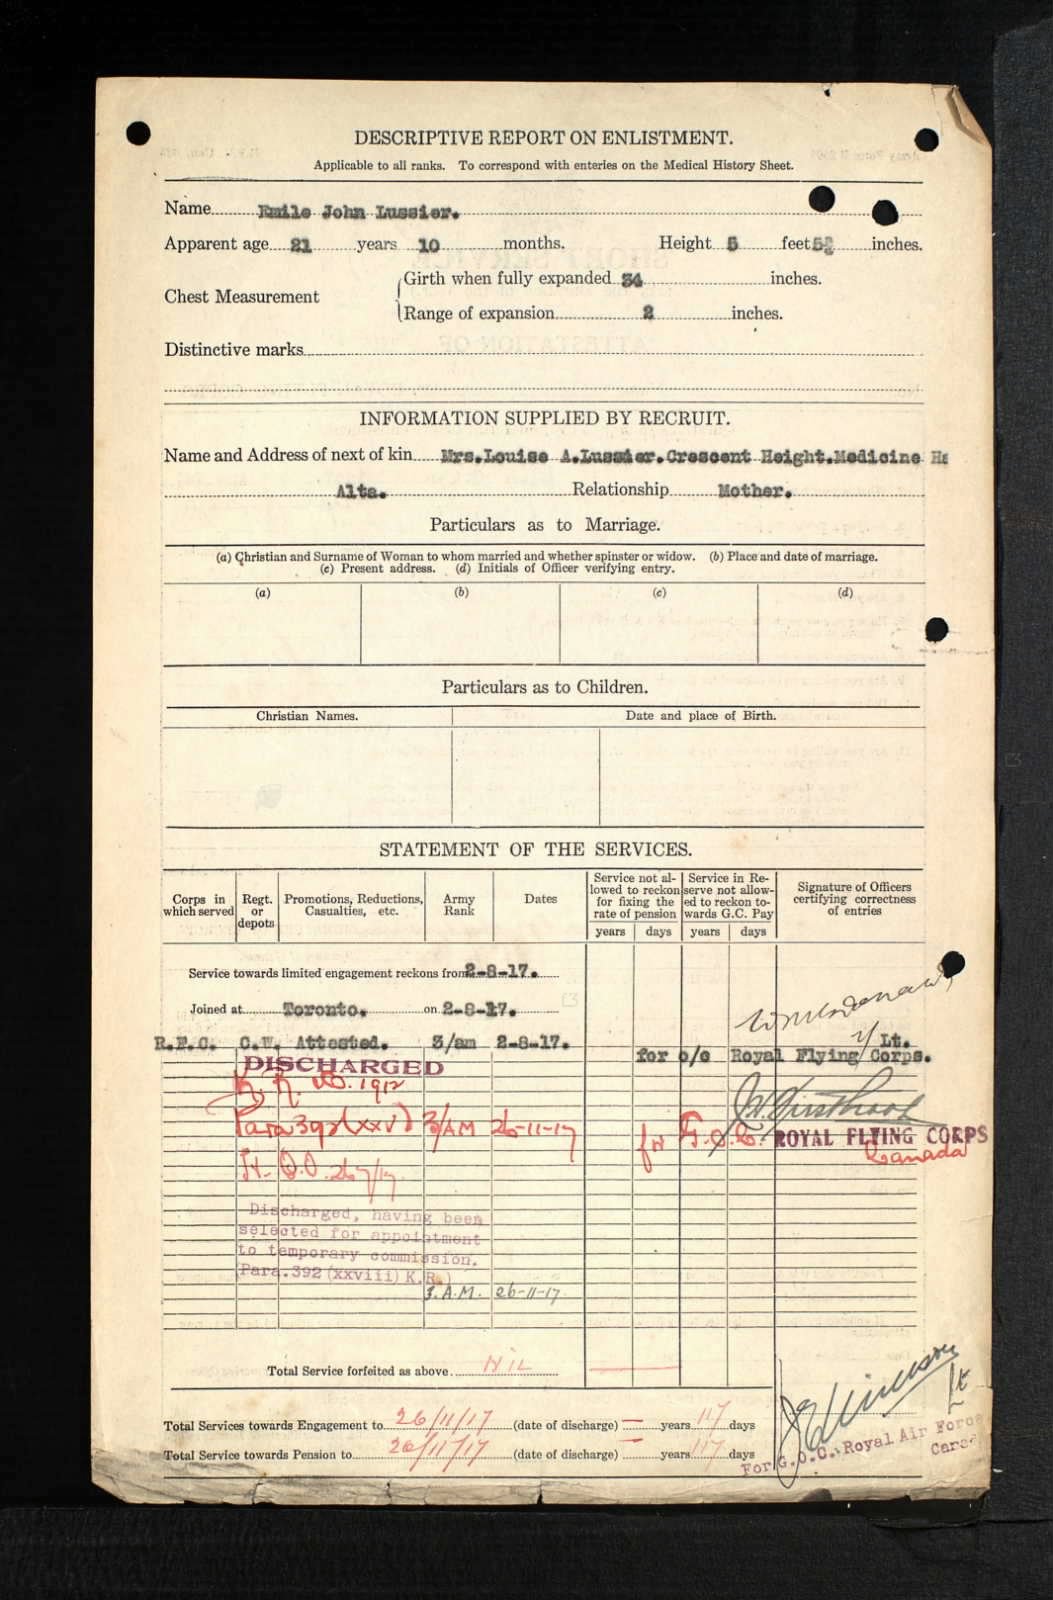 DESCRIPTIVE REPORT ON ENLISTMENT.
Applicable to all ranks. To correspond with enteries on the Medical History Sheet.
Name Emile John Lussier.
Apparent age 21 years 10 months. Height 5 feet 5¾ inches.
Girth when fully expanded 34 inches.
Chest Measurement
Range of expansion 2 inches.
Distinctive marks
INFORMATION SUPPLIED BY RECRUIT.
Name and Address of next of kin Mrs.Louise A.Lussier.Crescent Height.Medicine Ha
Alta. Relationship Mother.
Particulars as to Marriage.
(a) Christian and Surname of Woman to whom married and whether spinster or widow. (b) Place and date of marriage.
(c) Present address. (d) Initials of Officer verifying entry.
(a) (b) (c) (d)
Particulars as to Children.
Christian Names. Date and place of Birth.
STATEMENT OF THE SERVICES.
Corps in which served
Regt. or depots
Promotions, Reductions, Casualties, etc.
Army Rank
Dates
Service not allowed to reckon for fixing the rate of pension
Service in Reserve not allowed to reckon towards G.C. Pay
Signature of Officers certifying correctness of entries
years days years days
Service towards limited engagement reckons from 2-8-17.
Joined at Toronto. on 2-8-17.
R.F.C. C.W. Attested. 3/am 2-8-17. Lt.
for o/c Royal Flying Corps.
DISCHARGED
K. R. 1912
Para 392 (xxv) 3/AM 26-11-17 for G.O.C. ROYAL FLYING CORPS
Canada
Discharged, having been
selected for appointment
to temporary commission.
(Para.392 (xxviii) K.R.)
3.A.M. 26-11-17
Total Service forfeited as above Nil
Total Services towards Engagement to 26/11/17 (date of discharge) — years 117 days
Total Service towards Pension to 26/11/17 (date of discharge) — years 117 days
Lt
For G.O.C. Royal Air Force